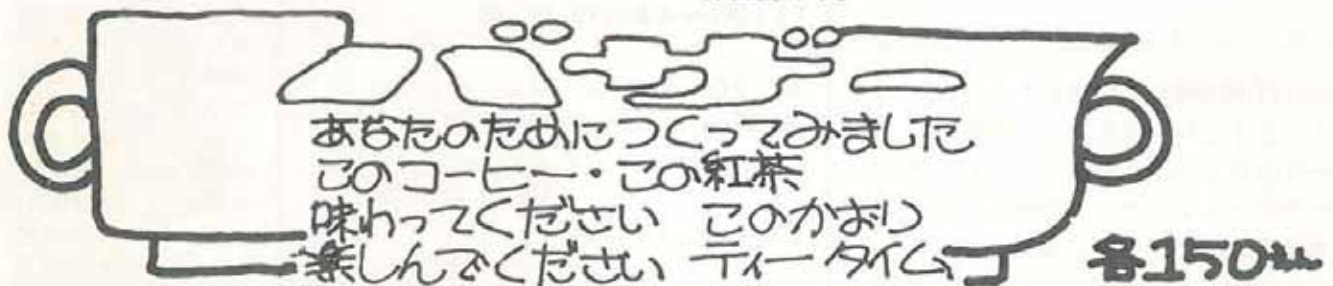 あなたのためにつくってみました
このコーヒー・この紅茶
味わってください このかおり
楽しんでください ティータイム
各150えん